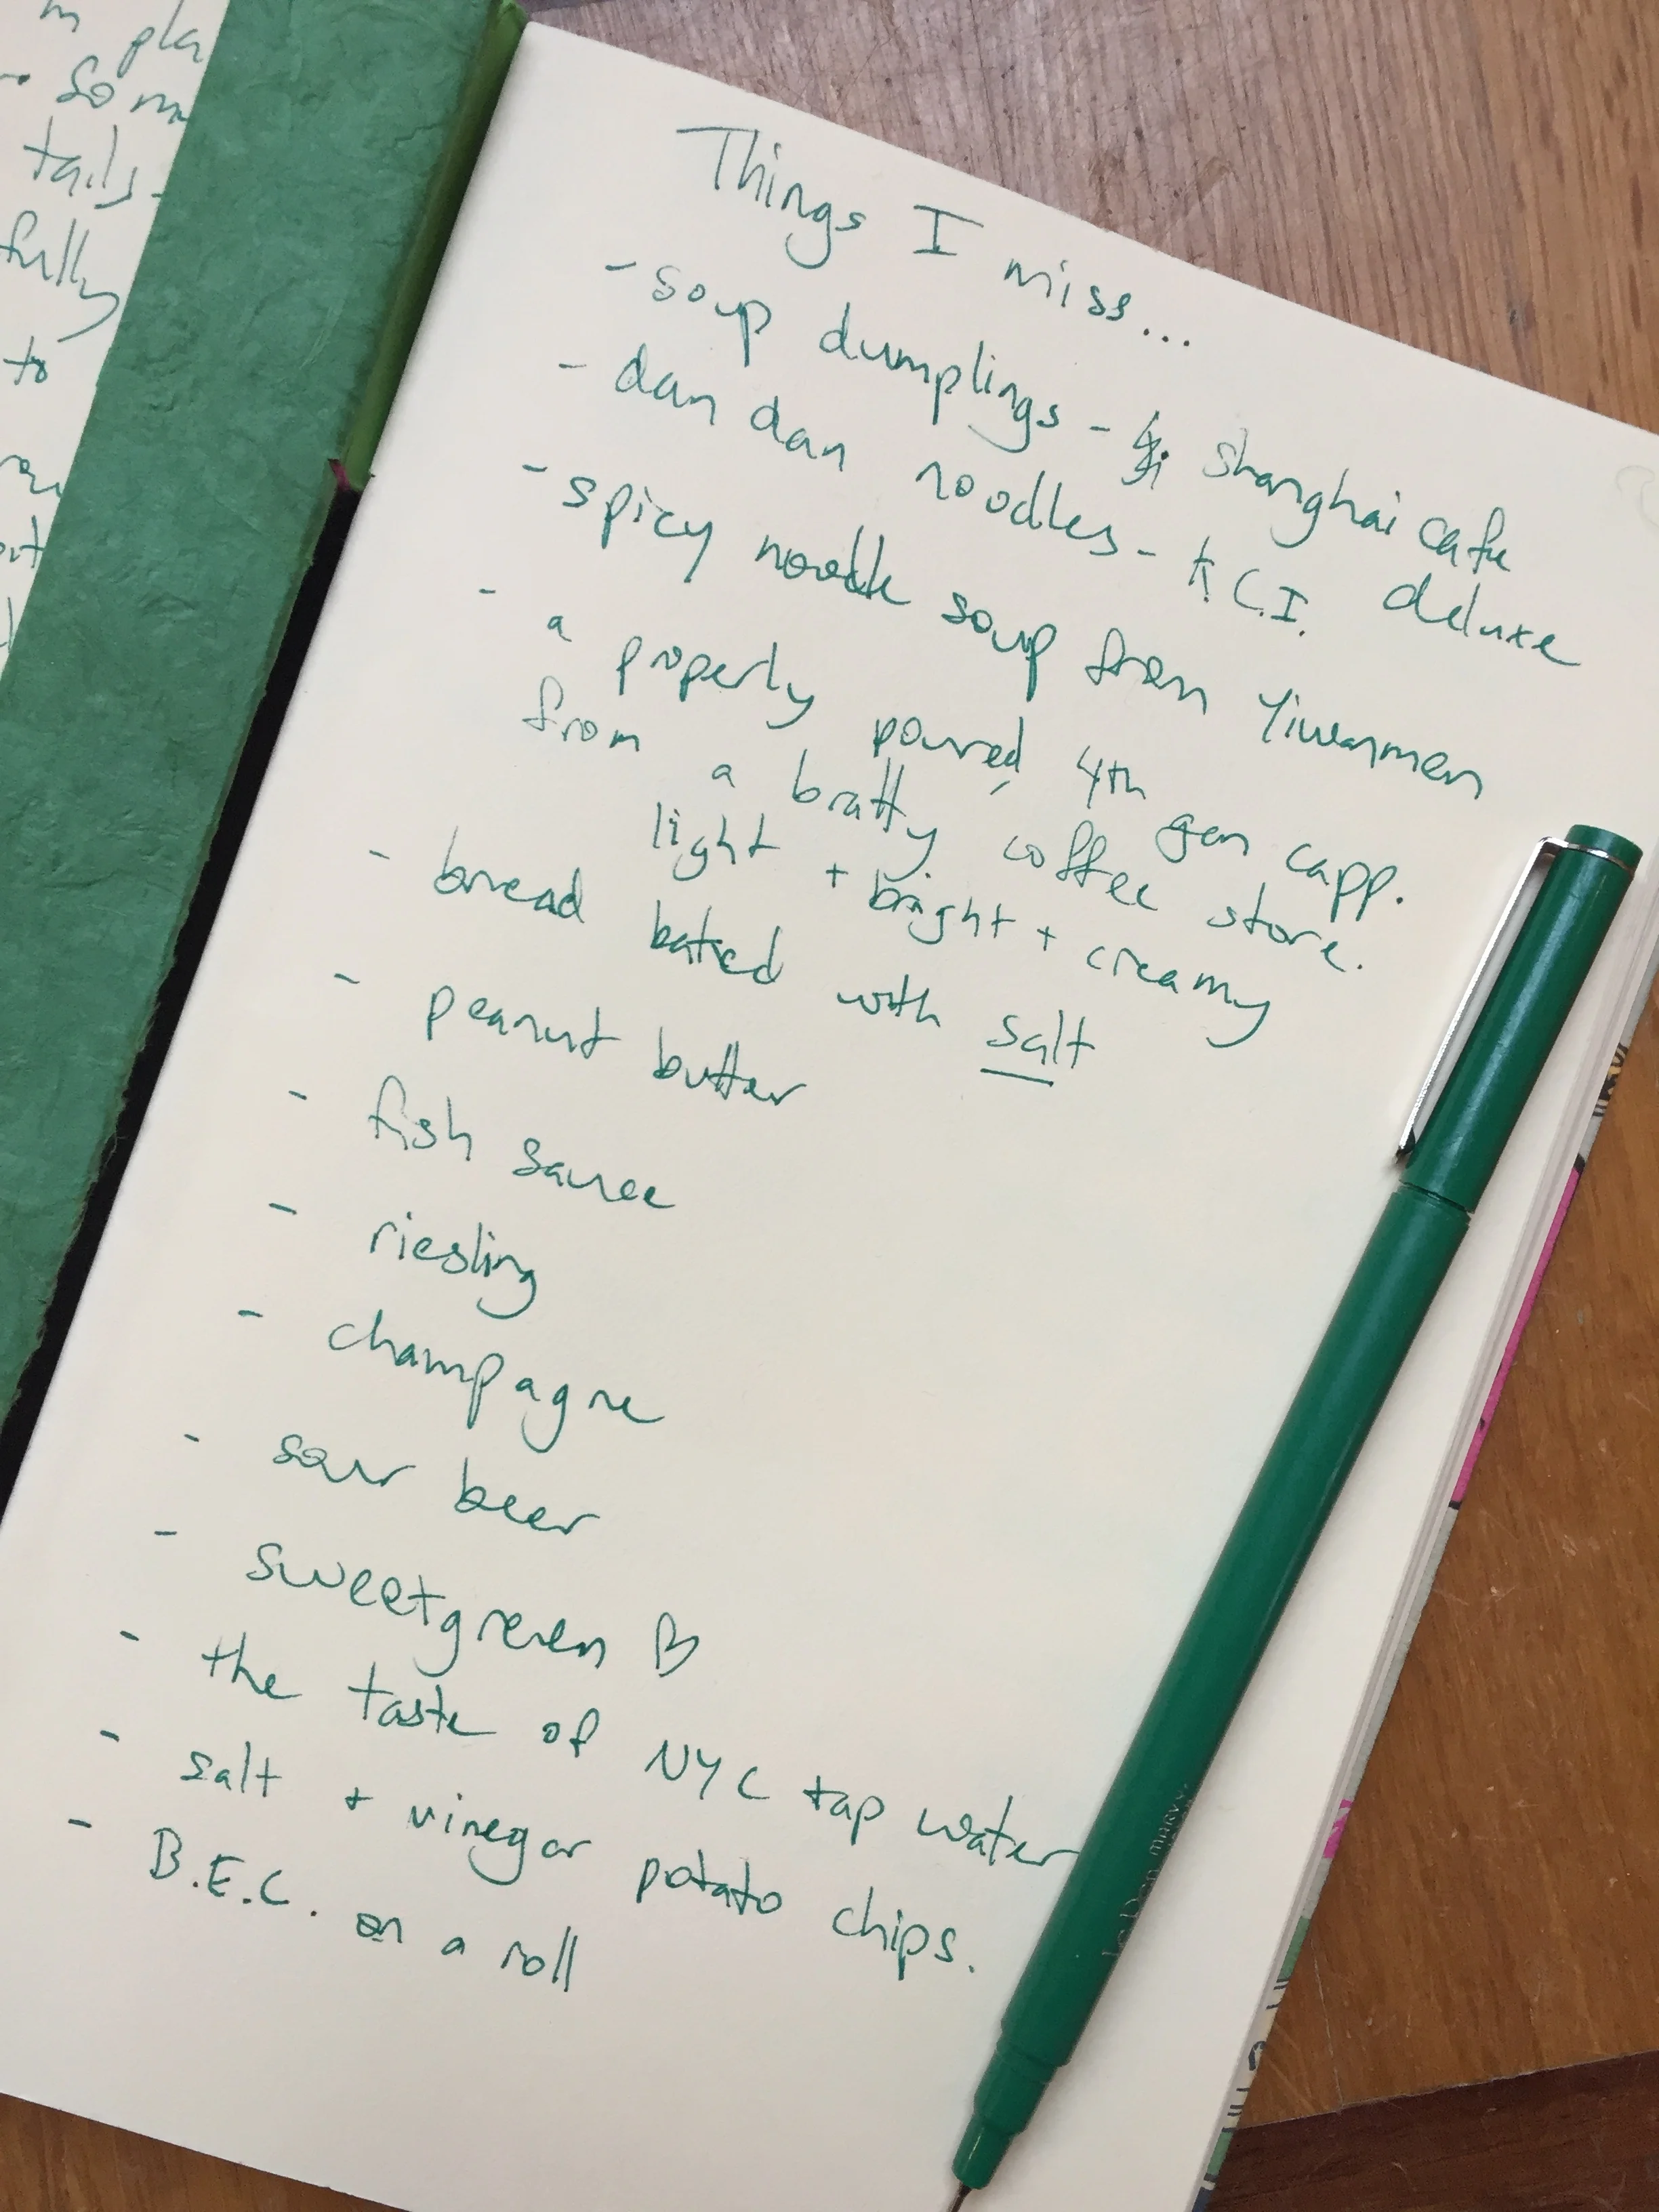 m pla
som
tails-
fully
to
Things I miss...
- soup dumplings - shanghai cafe deluxe
- dan dan noodles - C.I.
- spicy noodle soup from Yiwanmen
- a properly poured, 4th gen capp.
from a bratty coffee store.
light + bright + creamy
- bread baked with salt
- peanut butter
- fish sauce
- riesling
- champagne
- sour beer
- sweetgreen
- the taste of NYC tap water
- salt + vinegar potato chips.
- B.E.C. on a roll
LePen MARVY.